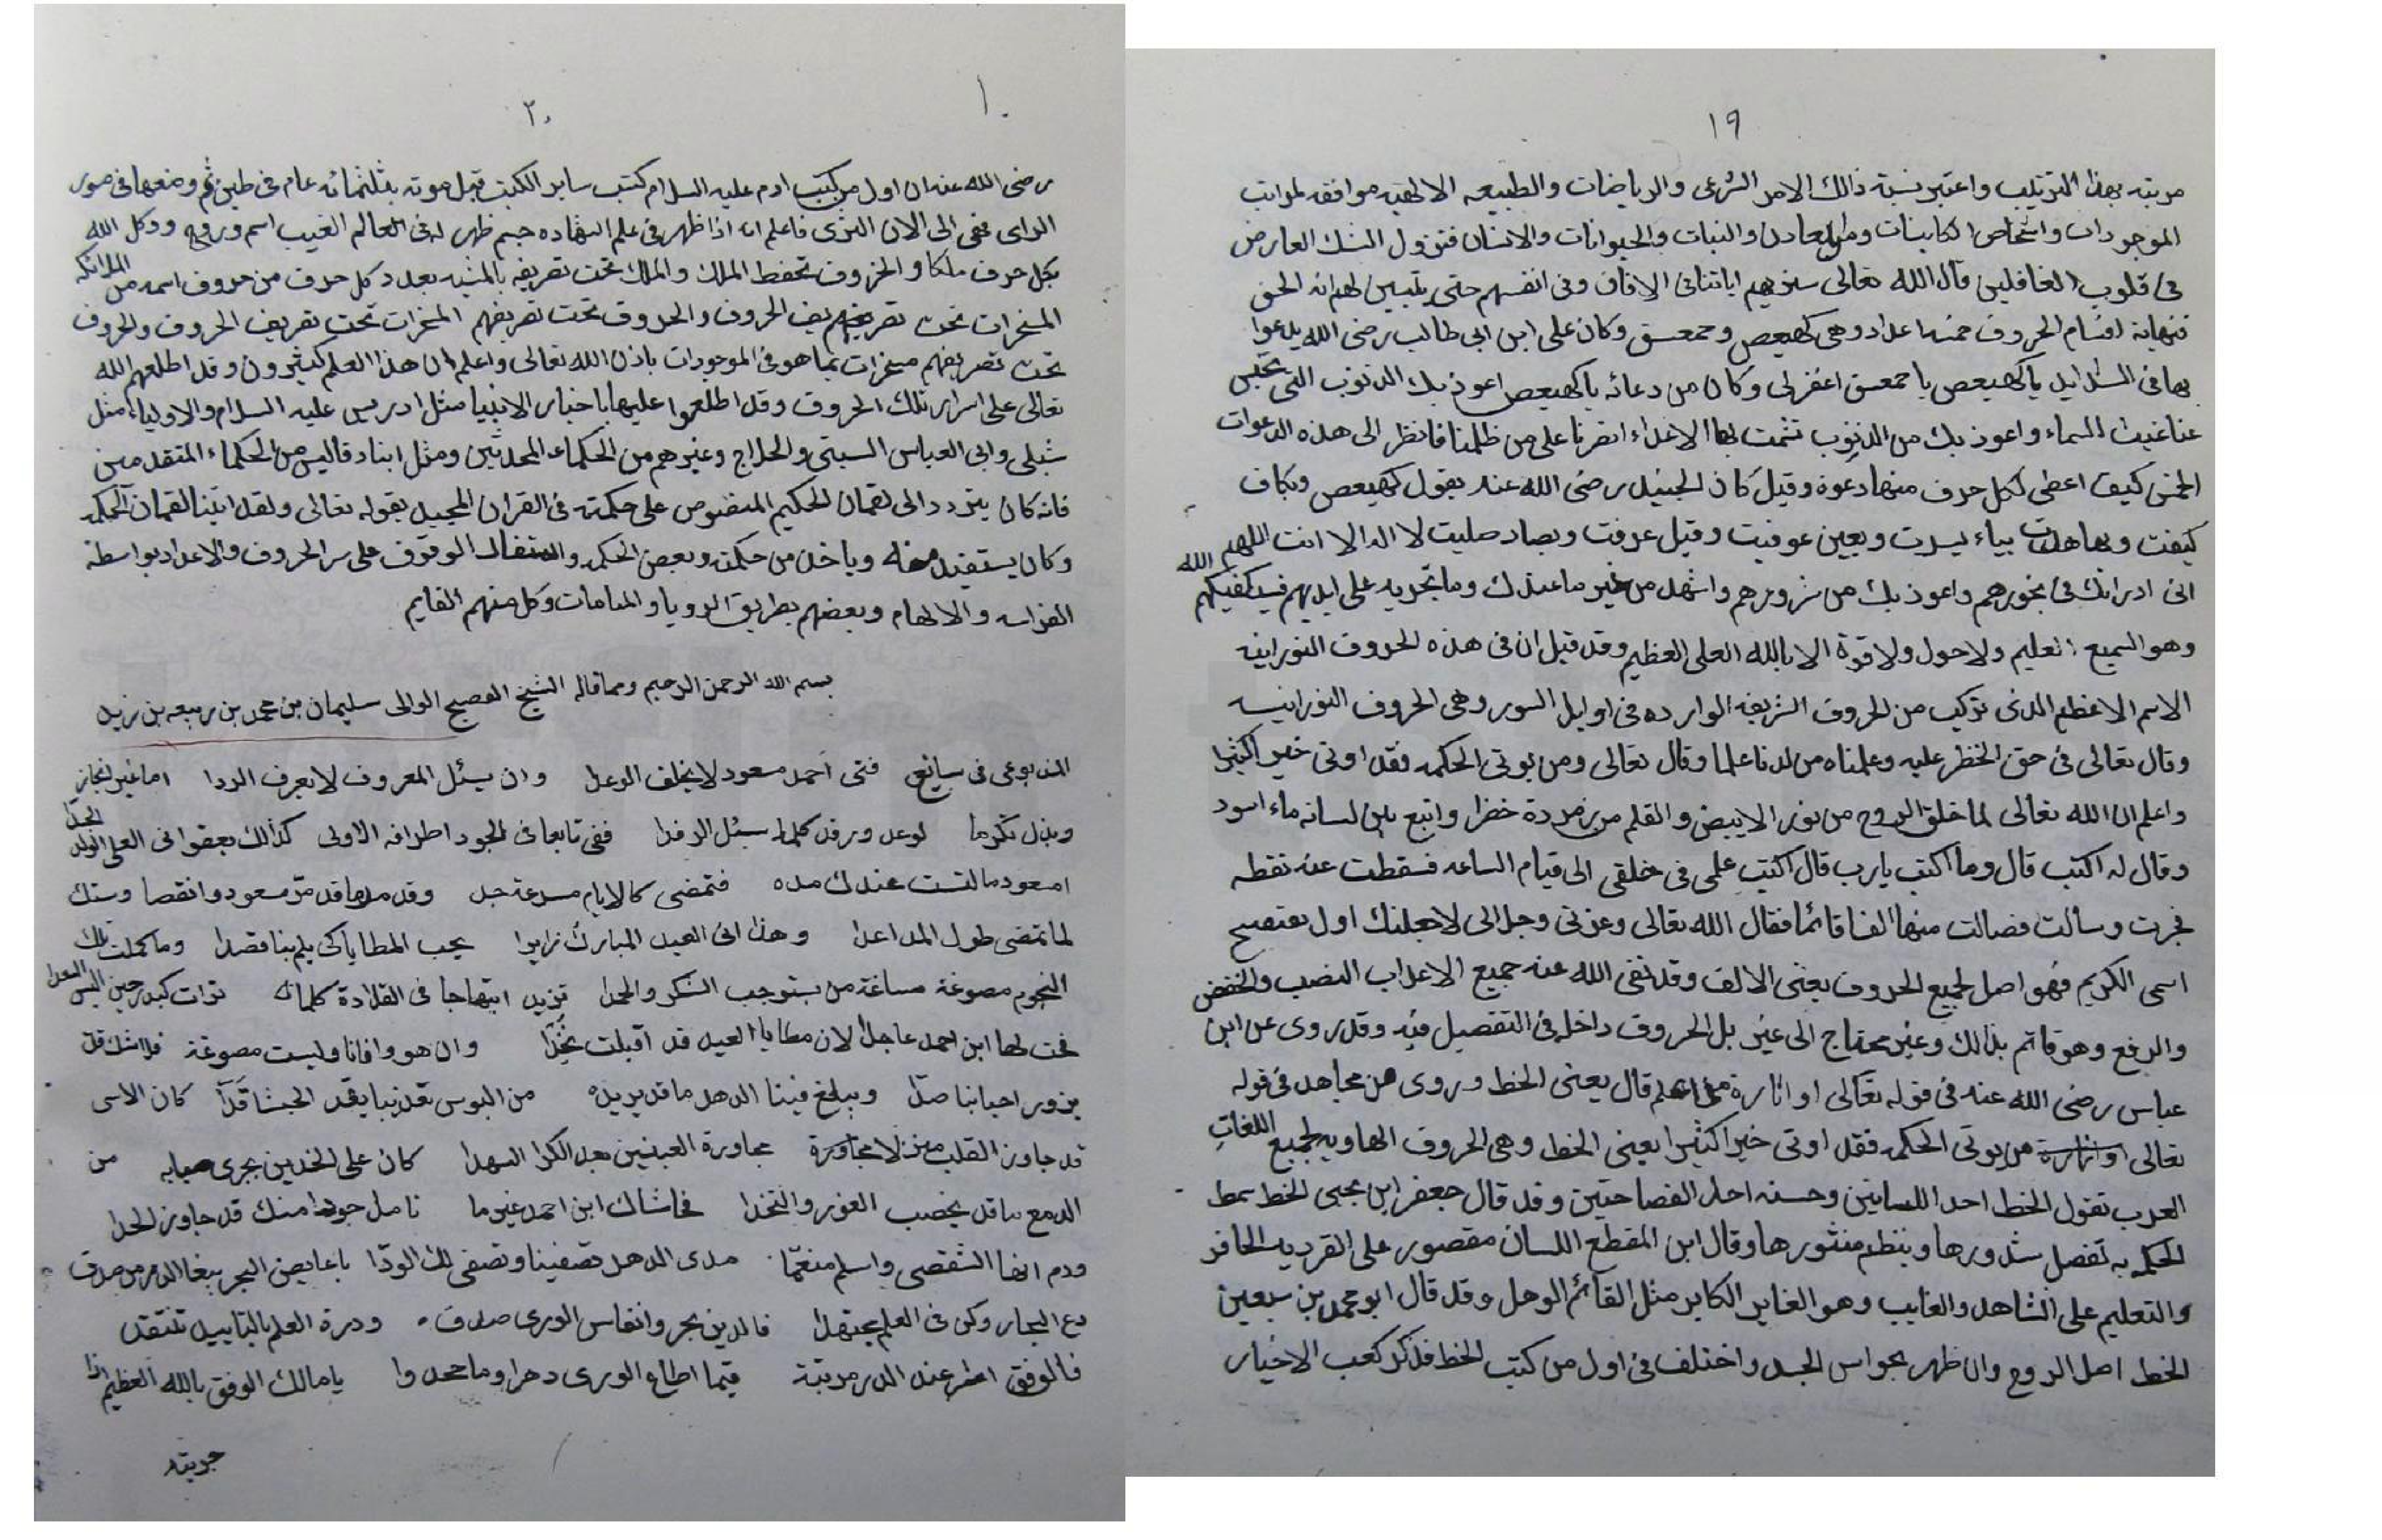 ١٩
مرتبته بهذا الترتيب واعتبر نسبة ذالك الامر الشرعى والرياضات والطبيعه الالهيه موافقه لمراتب
الموجودات واشخاص الكاينات والنبات والحيوانات والانسان فتزول الشك العارض
فى قلوب الغافلين قال الله تعالى سنريهم اياتنا فى الافاق وفى انفسهم حتى يتبين لهم انه الحق
فنهاية اقسام الحروف خمسة اعداد وهى كهيعص وحمعسق وكان على ابن ابى طالب رضى الله يدعوا
بها فى الشدايد ياكهيعص يا حمعسق اغفرلى وكان من دعائه ياكهيعص اعوذ بك الذنوب التى تحبس
عنا غيث السماء واعوذ بك من الذنوب تشمت بها الاعداء انصرنا على من ظلمنا فانظر الى هذه الدعوات
كيف اعطى لكل حرف منها دعوة وقيل كان الجنيد رضى الله عنه يقول كهيعص وبكاف
كيفت وبها هديت بياء يسرت وبعين عوفيت وقيل عرفت وبصاد صليت لا اله الا انت اللهم
انى ادرائك فى نحورهم واعوذ بك من شرورهم من خير ما عندك وما تجريه على ايديهم فسيكفيكهم الله
وهو السميع العليم ولا حول ولا قوة الا بالله العلى العظيم وقد قيل ان فى هذه الحروف النورانيه
الاسم الاعظم الذى تركب من الحروف الشريفه الوارده فى اوايل السور وهى الحروف النورانيه
وقال تعالى فى حق الخظر عليه وعلمناه من لدنا علما وقال تعالى ومن يوتى الحكمه فقد اوتى خير اكثيرا
واعلم ان الله تعالى لما خلق الروح من نور الابيض والقلم من زمردة خضرا واتبع من لسانه ماء اسود
وقال له اكتب قال وما اكتب يارب قال اكتب علمى فى خلقى الى قيام الساعه فسقطت عنه نقطه
فجرت وسالت فصالت منها الفا قائما فقال الله تعالى وعزتى وجلالى لاجعلنك اول مفتتح
اسمى الكريم فهو اصل لجميع الحروف يعنى الالف وقد نفى الله عنه جميع الاعراب النصب والخفض
والرفع وهو قائم بذالك وغير محتاج الى غير بل الحروف داخل فى التفصيل فيه وقد روى عن ابن
عباس رضى الله عنه فى قوله تعالى او اثارة من علم قال يعنى الخط وروى عن مجاهد فى قوله
تعالى من يوتى الحكمه فقد اوتى خير اكثيرا يعنى الخط وهى الحروف الهاويه لجميع اللغات
العرب تقول الخط احد اللسانين وحسنه احد الفصاحتين وقد قال جعفر ابن يحيى الخط سمط
الحكمه به تفصل شذورها وينظم منثورها وقال ابن المقطع اللسان مقصور على القريب الحاضر
والتعليم على الشاهد والغايب وهو الغابر الكاير مثل القائم الوهل وقد قال ابو محمد بن سبعين
الخط اصل الروح وان ظهر بحواس الجسد واختلف فى اول من كتب الخط فذكر كعب الاخيار
١٠
٢٠
رضى الله عنه ان اول من كتب ادم عليه السلام كتب ساير الكتب قبل موته بثلثمائه عام فى طين ثم وضعها فى صور
الراى فنفى الى الان الثرى فاعلم انه اذا ظهر فى علم الشهاده جسم ظهر له فى العالم الغيب اسم وروح ووكل الله
بكل حرف ملكا والحروف تحفط الملك والملك تحت تصريفه بعدد كل حرف من حروف اسمه من الملائكه
المسخرات تحت الحروف والحروف تحت تصريفهم المسخرات تحت تصريف الحروف والحروف
تحت تصريفهم مسخرات بما هو فى الموجودات باذن الله تعالى واعلم ان هذا العلم كثيرون وقد اطلعهم الله
تعالى على اسرار تلك الحروف وقد اطلعوا عليها باخبار الانبيا مثل ادريس عليه السلام والاولياء مثل
شبلى وابى العباس السبتى والحلاج وغيرهم من الحكماء المحدثين ومثل من الحكماء المتقدمين
فانه كان يتردد الى لقمان الحكيم المنصوص على حكمته فى القران المجيد بقوله تعالى ولقد اتينا لقمان الحكمه
وكان يستفيد منه وياخذ من حكمته وبعض الحكمه الوقوف على سر الحروف والاعداد بواسطة
الفراسه والالهام وبعضهم بطريق الرويا والمنامات وكل منهم القايم
بسم الله الرحمن الرحيم ومما قاله الشيخ الفصيح الوالى سليمان بن محمد بن ربيعه بن زيد
فتى احمد مسعود لا يخلف الوعدا وان سئل المعروف لا يعرف الردا اما غير انجاز
وبذل تكرما لوعد ورفد كلما سئل الرفدا ففى تابعا فى الجود اطرافه الاولى كذالك يعقوا فى العلى الولد الجدا
امسعود ما لتست عندك مده فتمضى كالايام مسرعة جدا وقد مدها قد مر مسعود وانقضا وستك
لما تمضى طول المدا عدا وهذا اتى العيد المبارك زايرا يحب المطايا كى يلم بنا قصدا وما كملت تلك
النجوم مصوغة مساغة من يستوجب الشكر والحمدا تزيد ابتهاجا فى القلادة كلما ترات كبدر حين البس السعدا
فحث لها ابن احمد عاجلا لان مطايا العيد قد اقبلت وان هو وافانا وليست مصوغة فلا شك قل
يزور احبابنا صدا ويبلغ فينا الدهر ما قد يريده من البوس كان الاسى
قد جاوز القلب منزلا مجاورة مجاورة العينين كان على الخدين يجرى صبابه من
الدمع ما قد يخصب الغور والنخدا فحاشاك ابن احمد غيرما تامل جودا منك قد جاوز الحدا
ودم واسلم منعما مدى الدهر تصفينا وتصفى لك الودا ياغايص البحر يبغا الدر من صدف
دع البحار وكن فى العلم مجتهدا فالدين بحر وانفاس الورى صدف ودرة العلم بالتاييد تنتقد
فالوفق عند الدر مرتبة فيما اطاع الورى دهرا وما جحدوا يا مالك الوفق بالله العظيم اذا
جريته